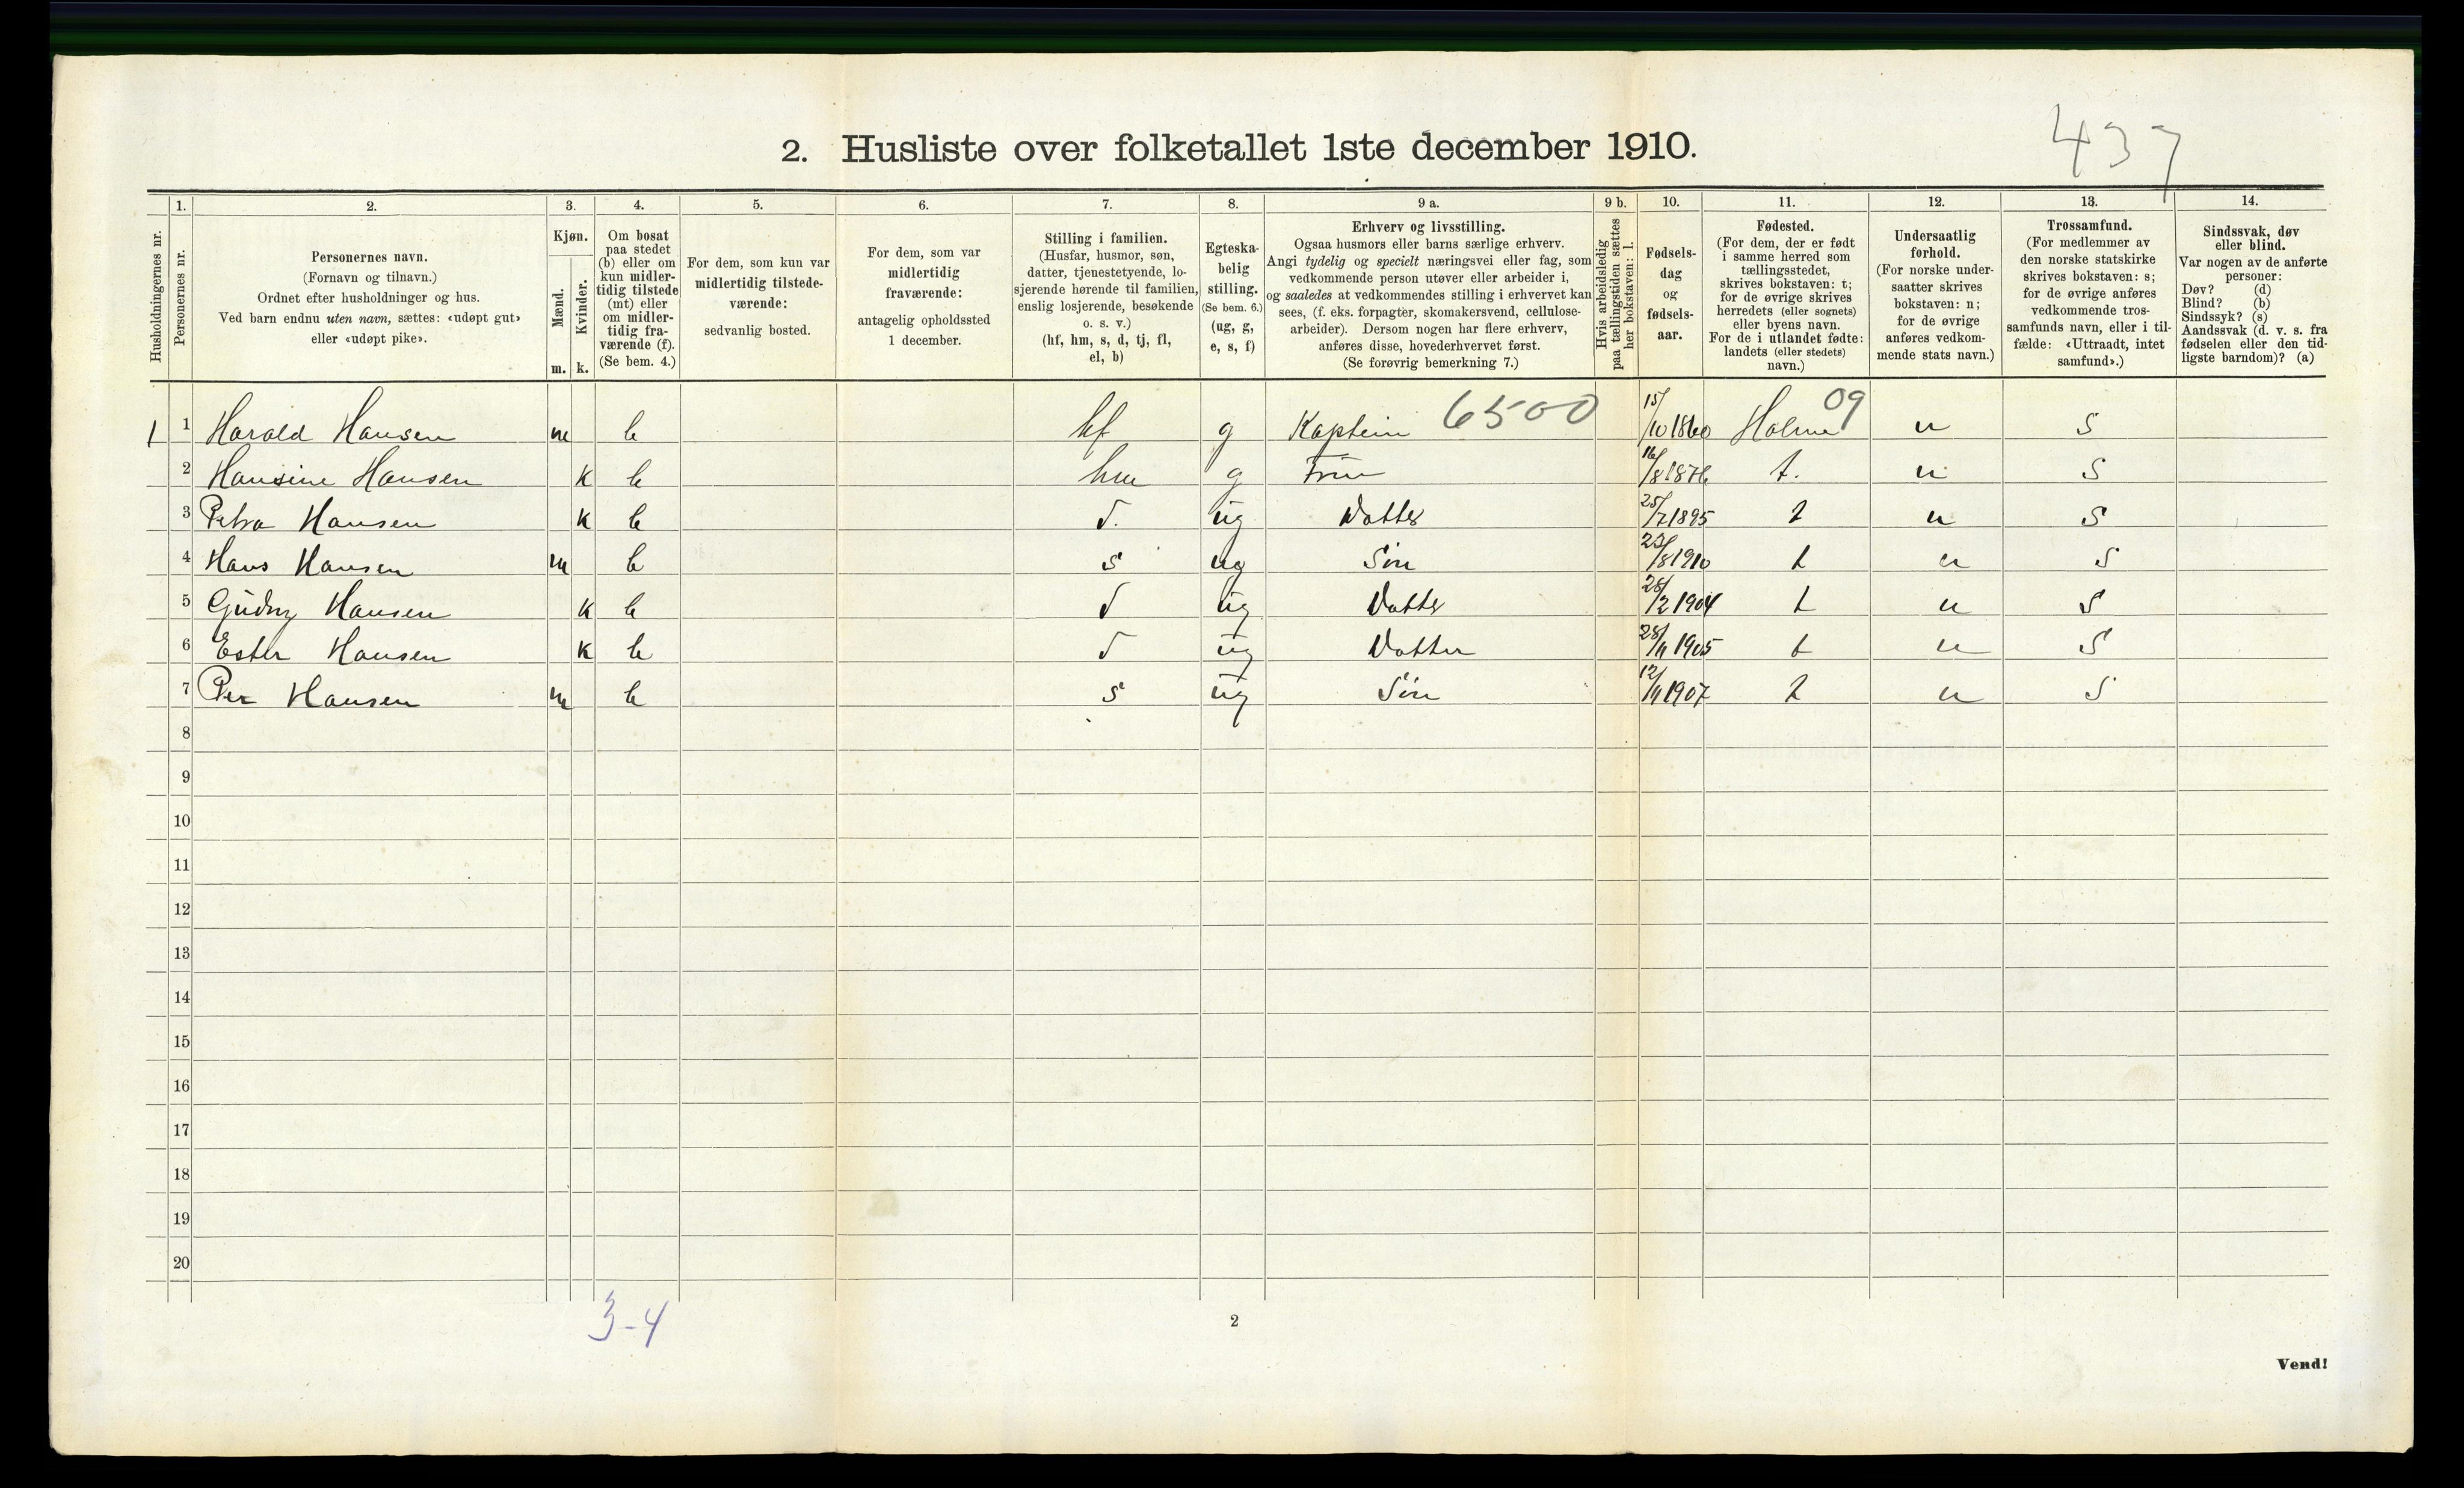 437
2. Husliste over folketallet 1ste december 1910.
Husholdningernes nr.
1.
Personernes nr.
2.
Personernes navn.
(Fornavn og tilnavn.)
Ordnet efter husholdninger og hus.
Ved barn endnu uten navn, sættes: «udøpt gut»
eller «udøpt pike».
3.
Kjøn.
Mænd.
Kvinder.
m. k.
4.
Om bosat
paa stedet
(b) eller om
kun midler-
tidig tilstede
(mt) eller
om midler-
tidig fra-
værende (f).
(Se bem. 4.)
5.
For dem, som kun var
midlertidig tilstede-
værende:
sedvanlig bosted.
6.
For dem, som var
midlertidig
fraværende:
antagelig opholdssted
1 december.
7.
Stilling i familien.
(Husfar, husmor, søn,
datter, tjenestetyende, lo-
sjerende hørende til familien,
enslig losjerende, besøkende
o. s. v.)
(hf, hm, s, d, tj, fl,
el, b)
8.
Egteska-
belig
stilling.
(Se bem. 6.)
(ug, g,
e, s, f)
9 a.
Erhverv og livsstilling.
Ogsaa husmors eller barns særlige erhverv.
Angi tydelig og specielt næringsvei eller fag, som
vedkommende person utøver eller arbeider i,
og saaledes at vedkommendes stilling i erhvervet kan
sees, (f. eks. forpagter, skomakersvend, cellulose-
arbeider). Dersom nogen har flere erhverv,
anføres disse, hovederhvervet først.
(Se forøvrig bemerkning 7.)
9 b.
Hvis arbeidsledig
paa tællingstiden sættes
her bokstaven: l.
10.
Fødsels-
dag
og
fødsels-
aar.
11.
Fødested.
(For dem, der er født
i samme herred som
tællingsstedet,
skrives bokstaven: t;
for de øvrige skrives
herredets (eller sognets)
eller byens navn.
For de i utlandet fødte:
landets (eller stedets)
navn.)
12.
Undersaatlig
forhold.
(For norske under-
saatter skrives
bokstaven: n;
for de øvrige
anføres vedkom-
mende stats navn.)
13.
Trossamfund.
(For medlemmer av
den norske statskirke
skrives bokstaven: s;
for de øvrige anføres
vedkommende tros-
samfunds navn, eller i til-
fælde: «Uttraadt, intet
samfund».)
14.
Sindssvak, døv
eller blind.
Var nogen av de anførte
personer:
Døv? (d)
Blind? (b)
Sindssyk? (s)
Aandssvak (d. v. s. fra
fødselen eller den tid-
ligste barndom)? (a)
1 1 Harald Hansen m b hf g Kaptein 6500 15/10 1860 Holme 09 n S
2 Hansine Hansen K b hm g Frue 16/8 1876 t. n S
3 Petra Hansen K b d. ug Datter 25/7 1895 t n S
4 Hans Hansen m b s ug Søn 23/8 1910 t n S
5 Gudny Hansen K b d ug Datter 28/2 1904 t n S
6 Ester Hansen K b d ug Datter 28/11 1905 t n S
7 Per Hansen m b s ug Søn 12/11 1907 t n S
8
9
10
11
12
13
14
15
16
17
18
19
20
3-4
2
Vend!